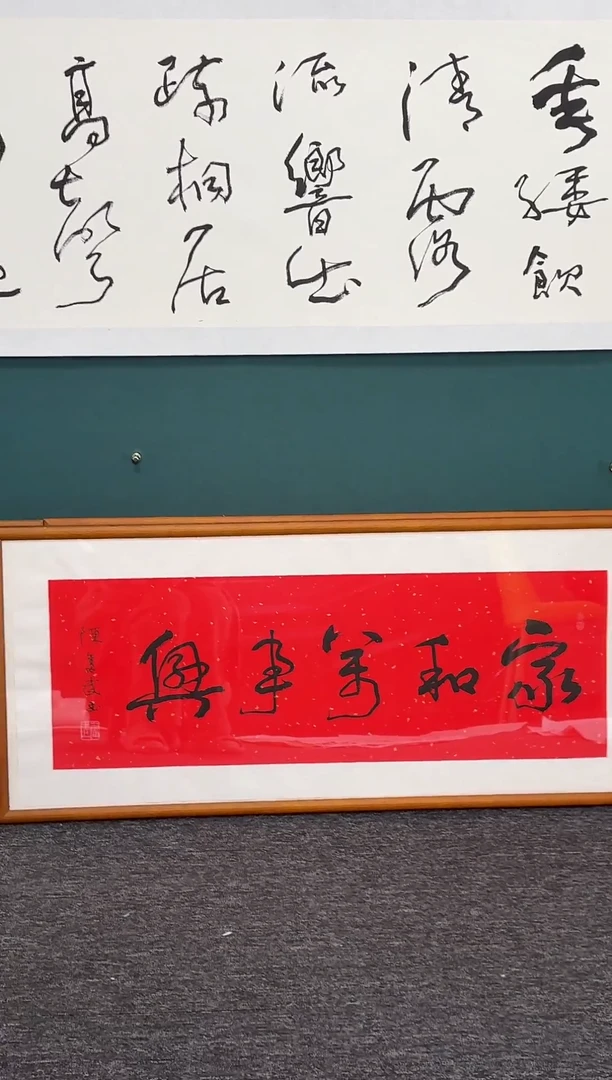 垂緌飲
清露
流響出
疏桐居
高聲
家和萬事興